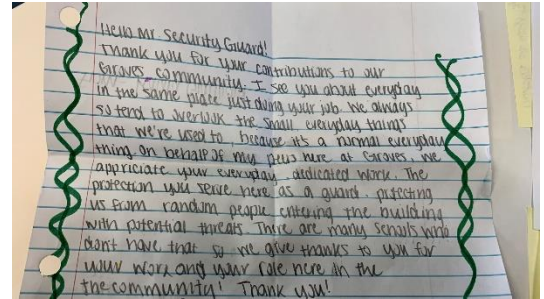 Hello Mr. Security Guard!
Thank you for your contributions to our
Groves community. I see you about everyday
in the same place just doing your job. We always
so tend to overlook the small everyday things
that we're used to, because it's a normal everyday
thing. On behalf of my peers here at Groves, we
appriciate your everyday, dedicated work. The
protection you serve here as a guard, protecting
us from random people entering the building
with potential threats. There are many schools who
don't have that so we give thanks to you for
your work and your role here in the
the community! Thank you!